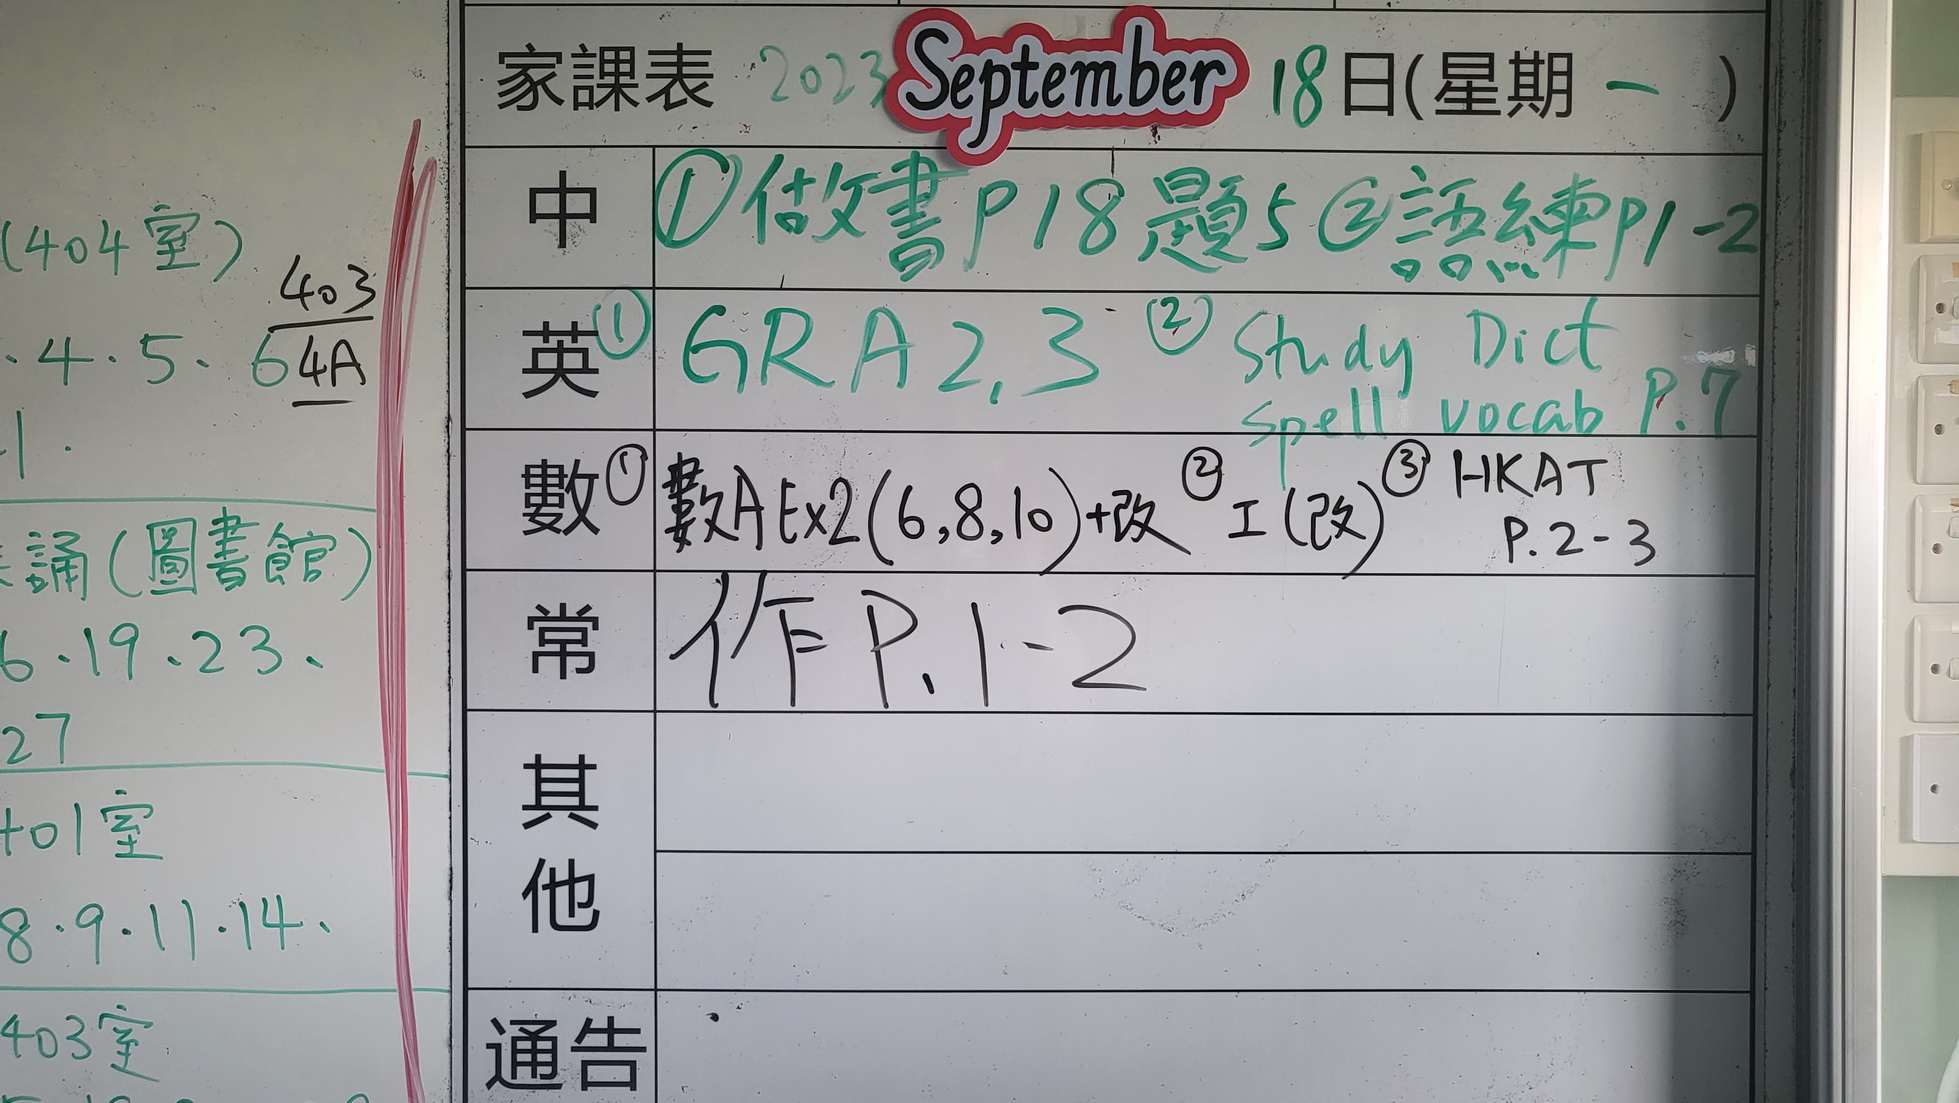 家課表 2023 September 18日(星期一)
中 ①做書P18題5 ②語練P1-2
英 ① GRA 2,3 ② Study Dict
spell vocab P.7
數 ① 數A Ex2(6,8,10)+改 ② 工(改) ③ HKAT
P.2-3
常 作P.1-2
其他
通告
(404室)
403
4A
·4·5·6
1·
誦(圖書館)
6·19·23·
27
401室
8·9·11·14·
403室